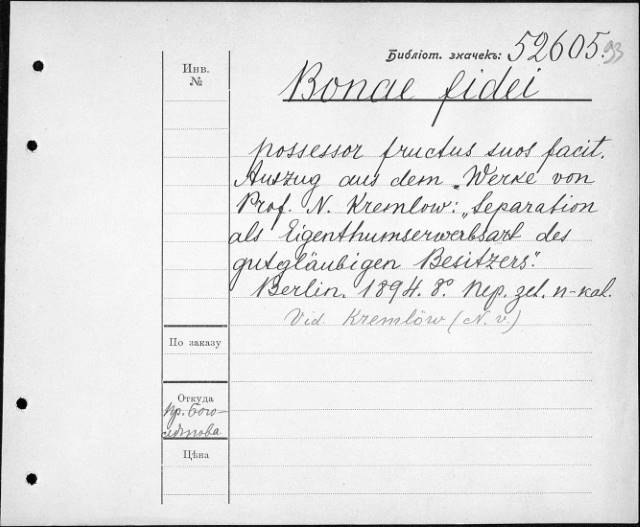 Библіот. значекъ: 52605.93
Инв.
№
Bonae fidei
possessor fructus suos facit.
Auszug aus dem „Werke von
Prof. N. Kremlow: „Separation
als Eigenthumserwerbsart des
gutgläubigen Besitzers".
Berlin. 1894. 8°.
Vid. Kremlow (N. v.)
По заказу
Откуда
Пр. Бого-
лѣпова
Цѣна